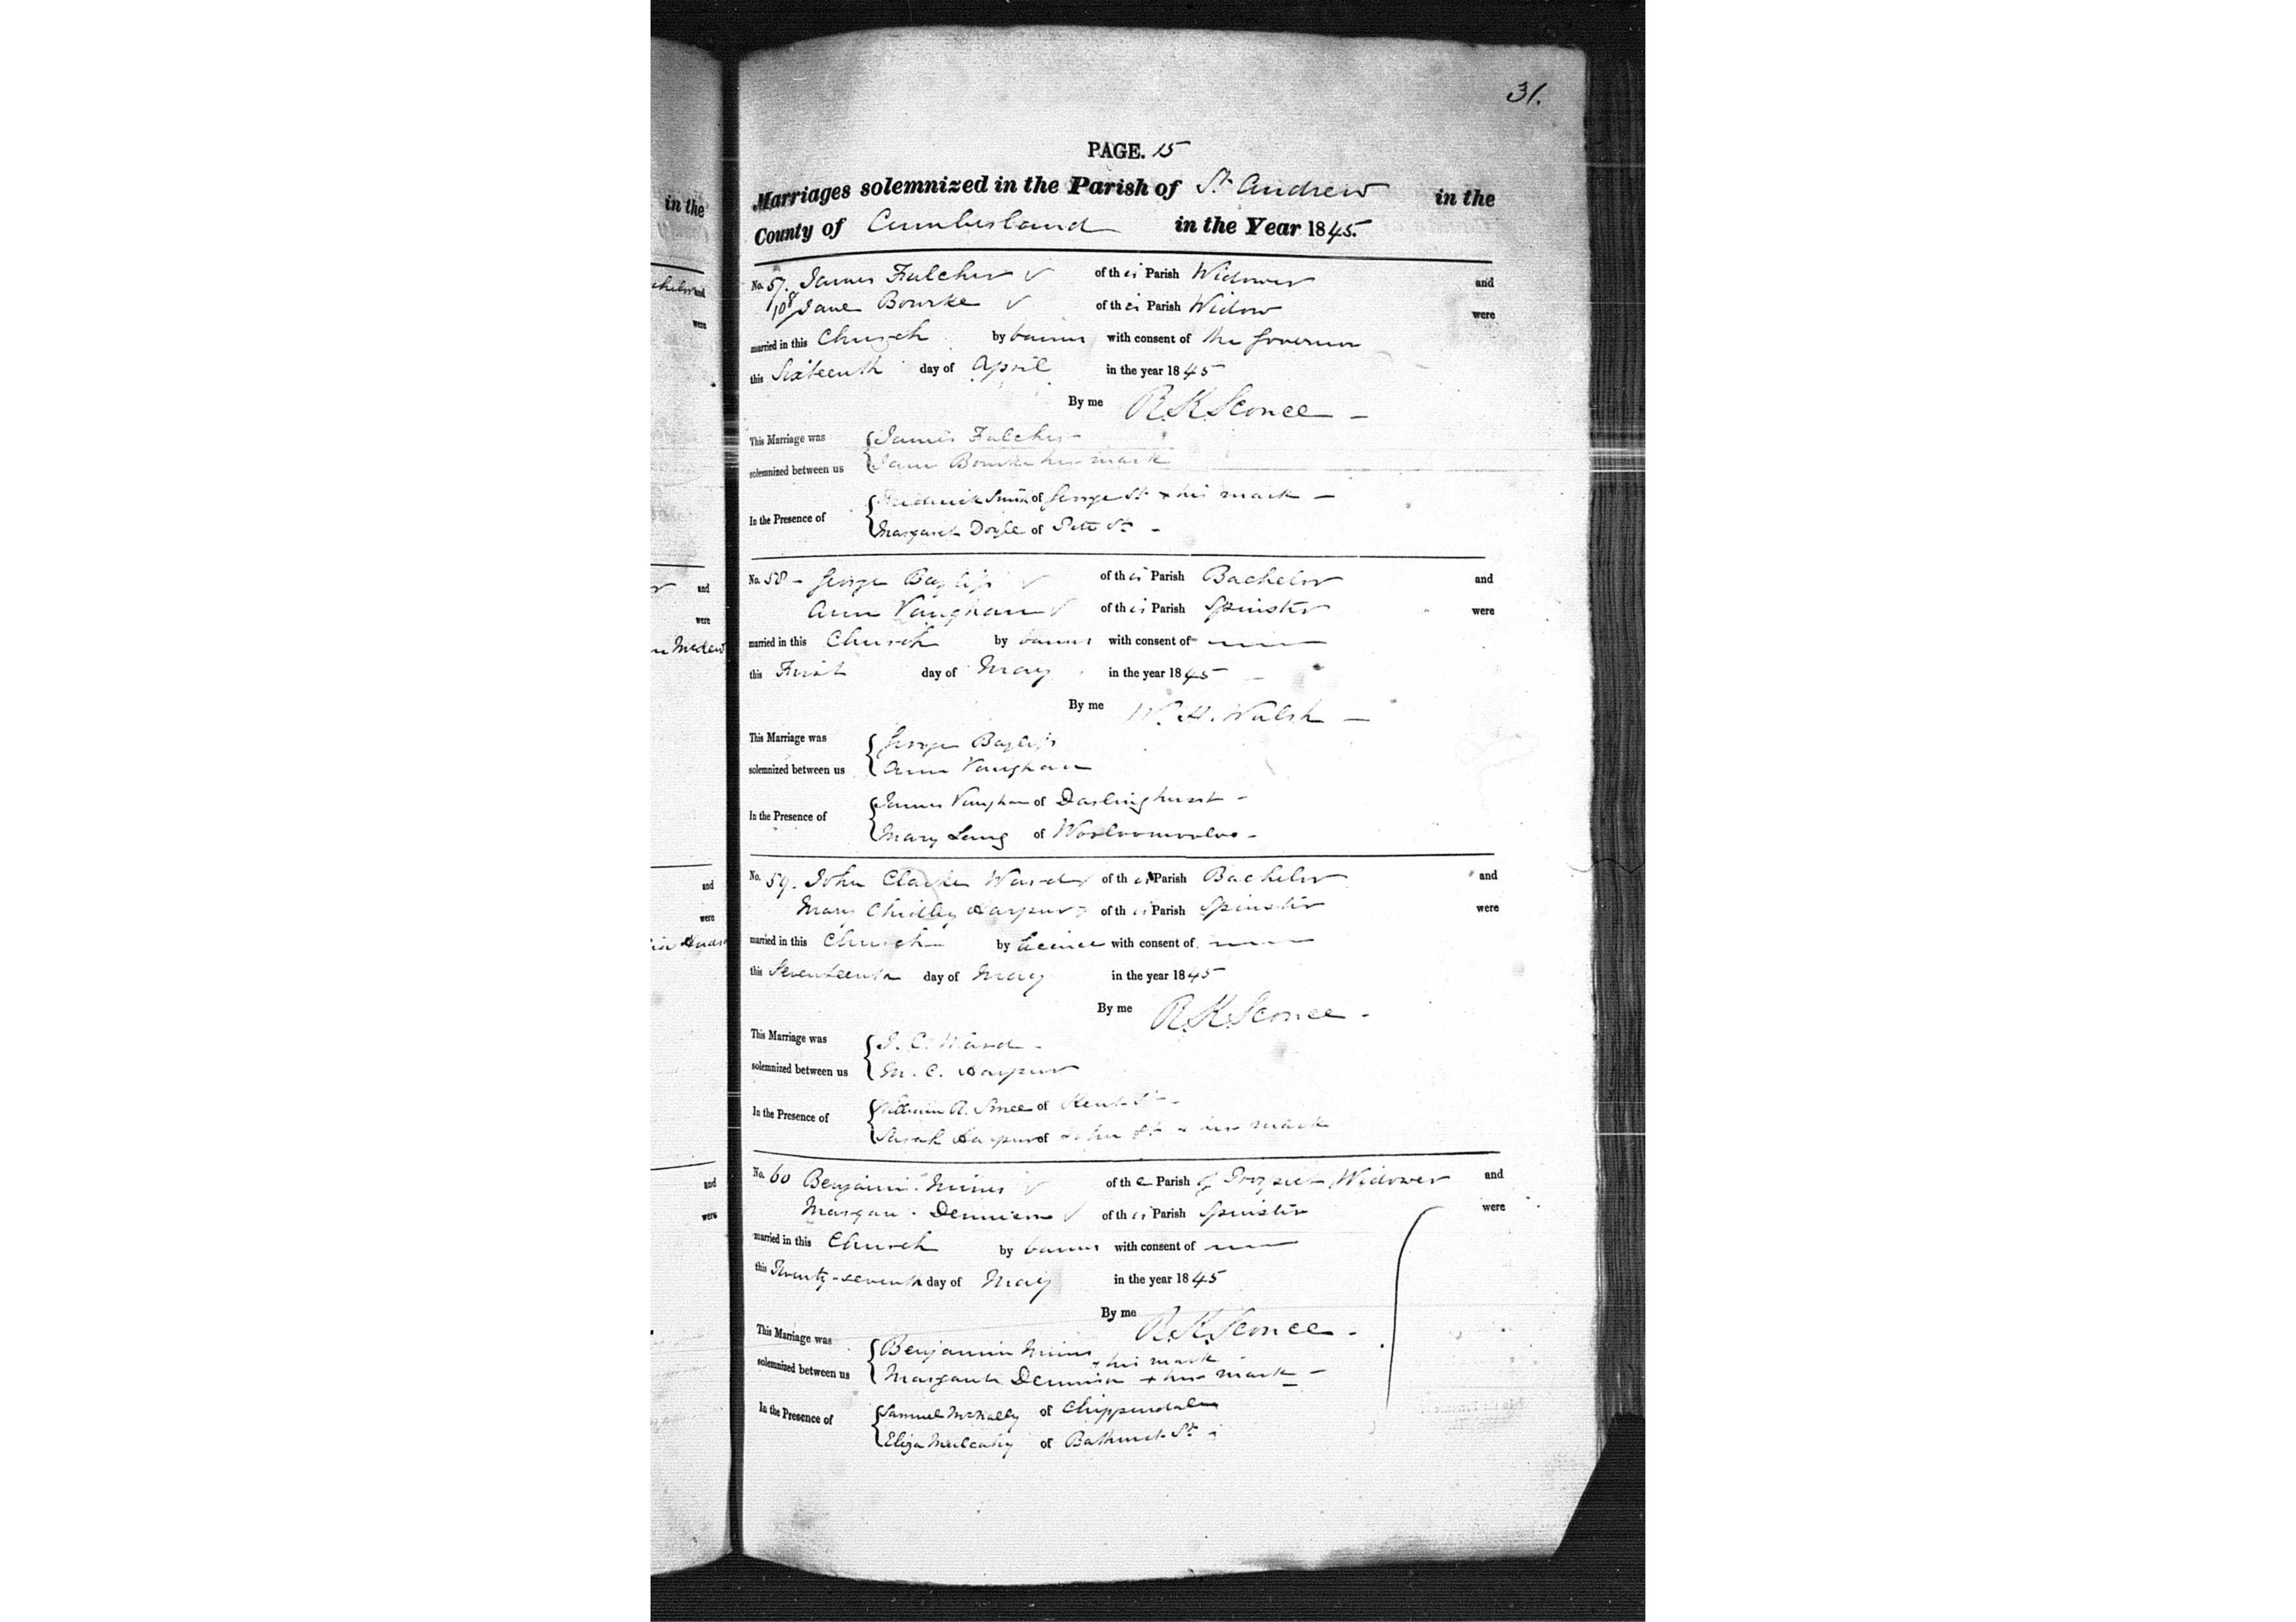 in the
and
were
and
were
and
were
and
were
31.
PAGE. 15
Marriages solemnized in the Parish of St. Andrew in the
County of Cumberland in the Year 1845.
No. 57. James Fulcher of this Parish Widower and
108 Jane Bourke of this Parish Widow were
married in this Church by banns with consent of the Governor
this Sixteenth day of April in the year 1845
By me R.K. Sconce
This Marriage was James Fulcher
solemnized between us Jane Bourke her mark
In the Presence of Frederick Smith of George St. + his mark
Margaret Doyle of Pitt St.
No. 58 George Bayliss of this Parish Bachelor and
Ann Vaughan of this Parish Spinster were
married in this Church by banns with consent of
this First day of May in the year 1845
By me W. H. Walsh
This Marriage was George Bayliss
solemnized between us Ann Vaughan
In the Presence of James Vaughan of Darlinghurst
Mary Lang of Woolloomooloo
No. 59. John Clarke Ward of this Parish Bachelor and
Mary Chidley Harpur of this Parish Spinster were
married in this Church by licence with consent of
this Seventeenth day of May in the year 1845
By me R.K. Sconce
This Marriage was J. C. Ward
solemnized between us M. C. Harpur
In the Presence of William A. of Kent St.
Sarah Harpur of John St. + her mark
No. 60 Benjamin Mimms of the Parish of Widower and
Margaret Dennison of this Parish Spinster were
married in this Church by banns with consent of
this Twenty-seventh day of May in the year 1845
By me R.K. Sconce
This Marriage was Benjamin + his mark
solemnized between us Margaret Dennison + her mark
In the Presence of Samuel McNally of Chippendale
Eliza Mulcahy of Bathurst St.